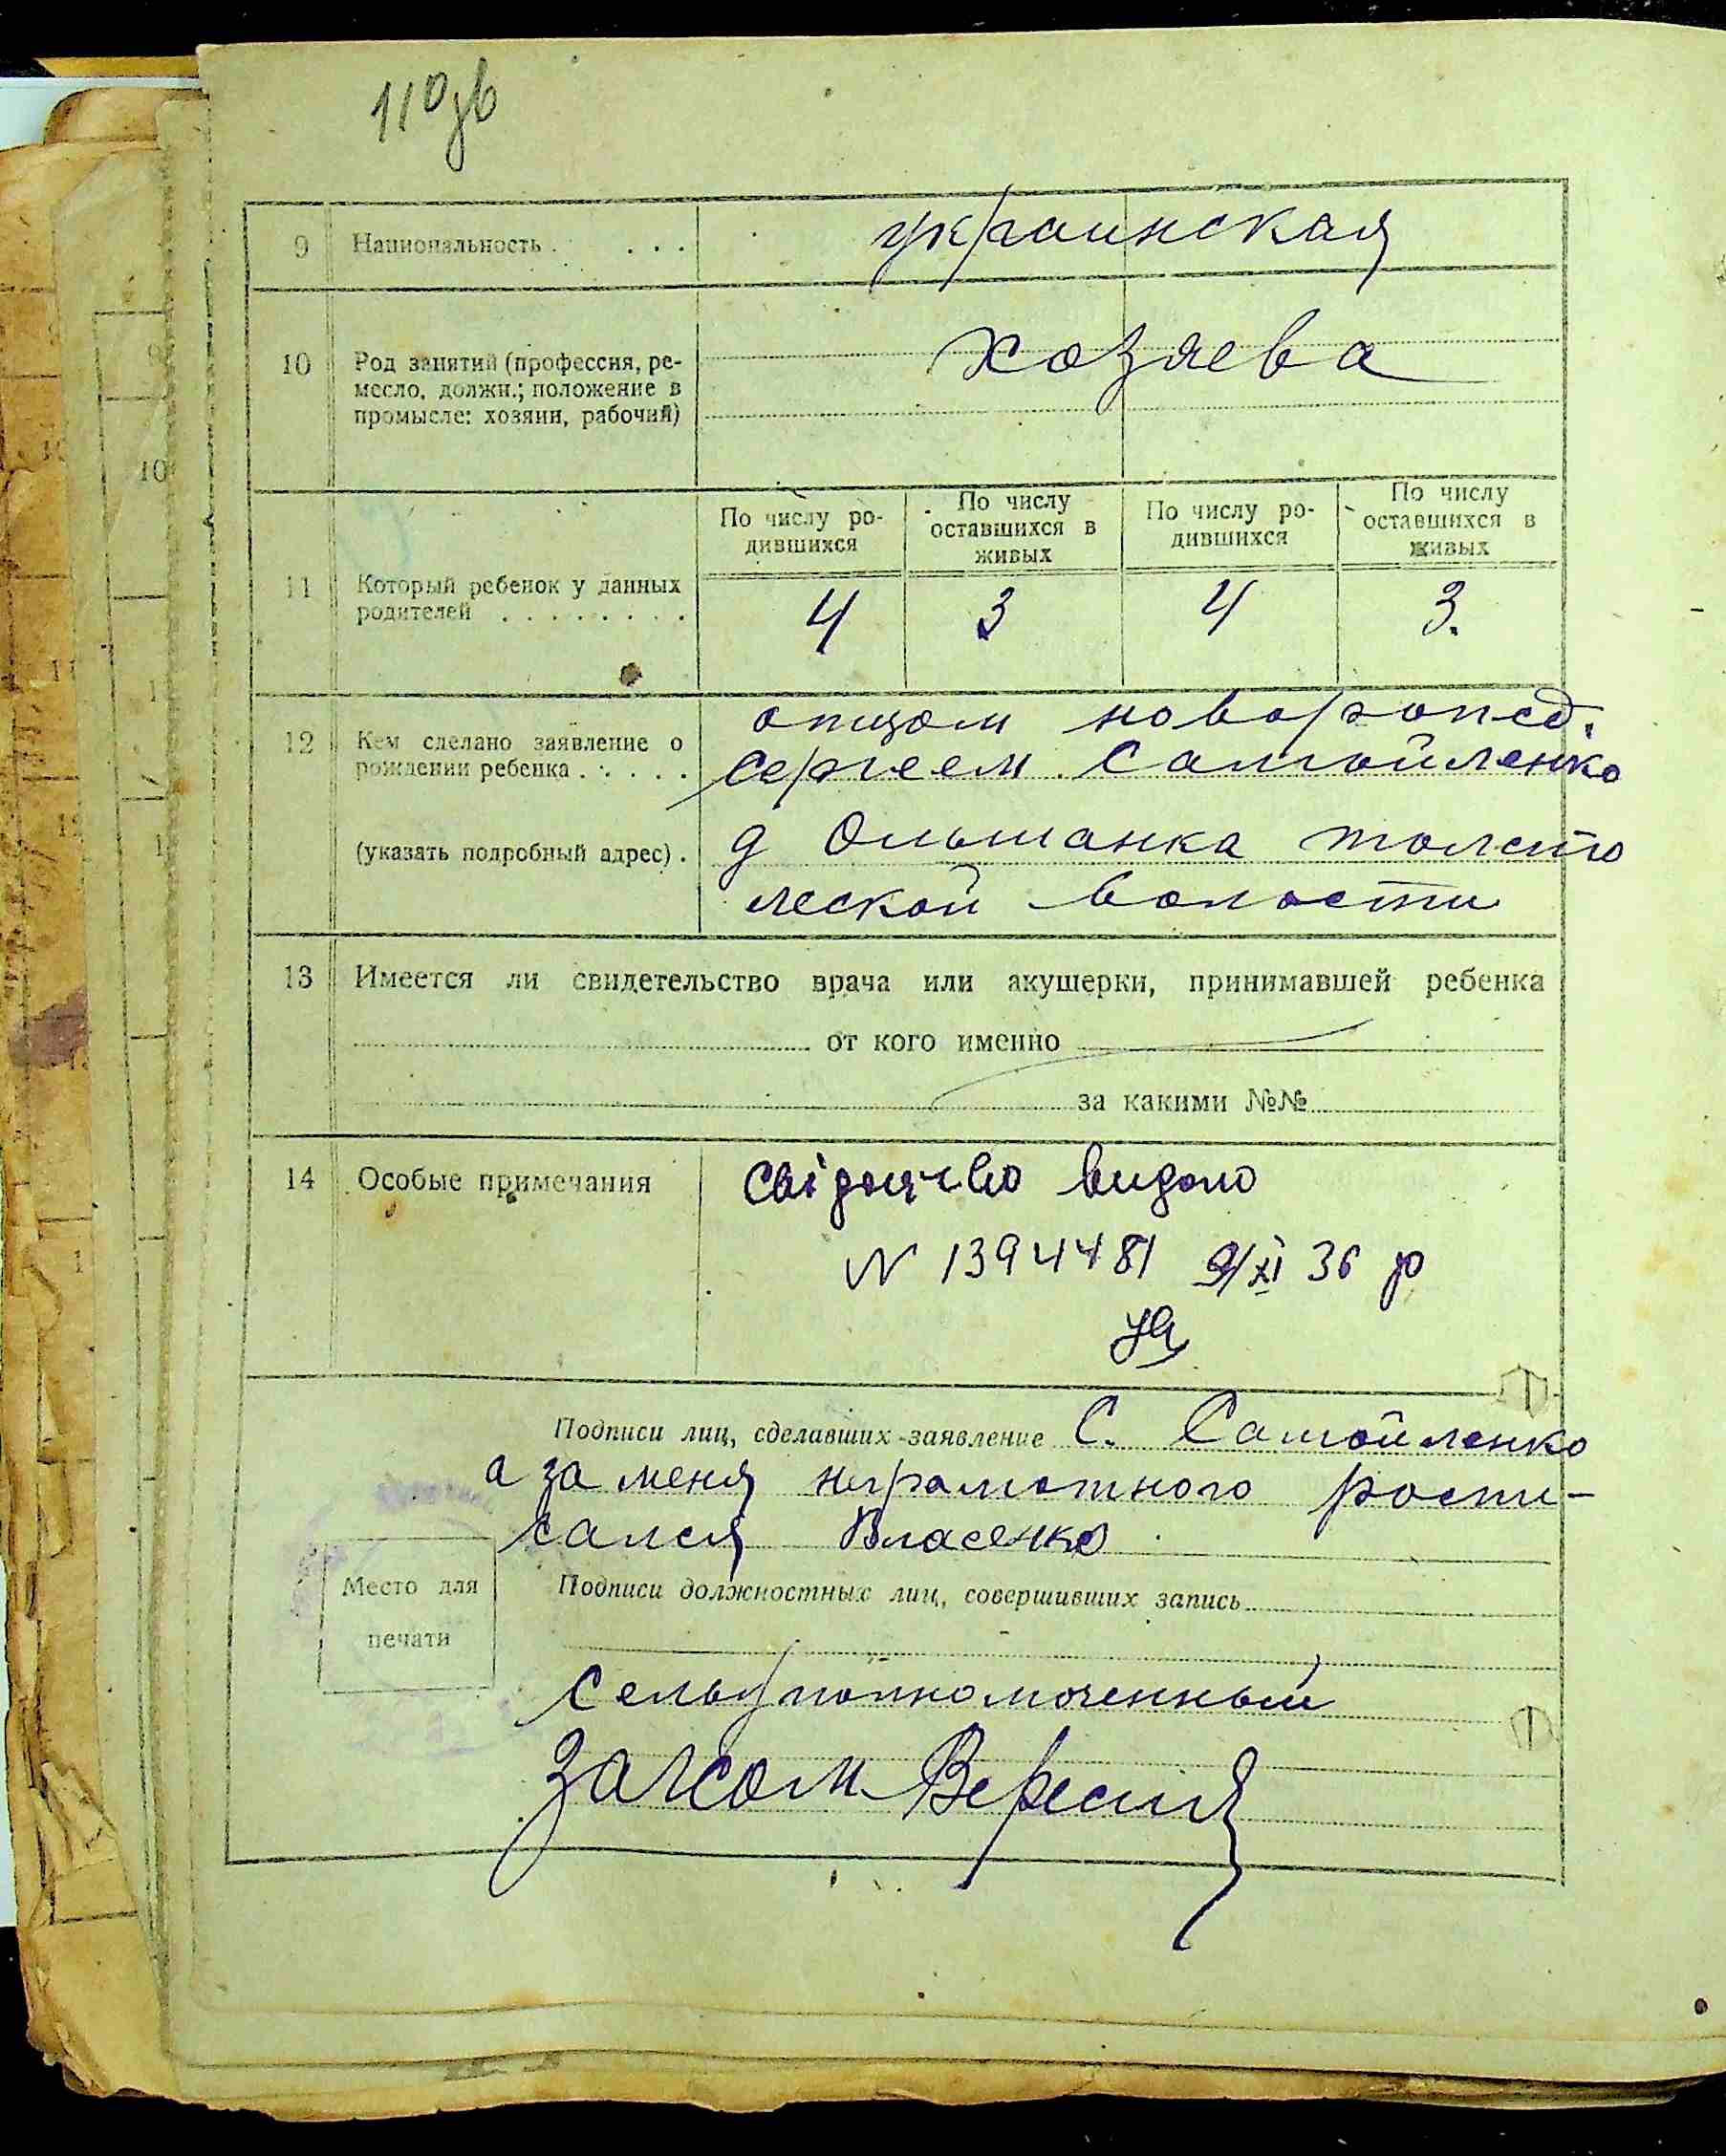 110зв
9 Национальность . . . . украинская
10 Род занятий (профессия, ре-
месло, должн.; положение в
промысле: хозяин, рабочий)
хозяева
По числу ро-
дившихся
По числу
оставшихся в
живых
По числу ро-
дившихся
По числу
оставшихся в
живых
11 Который ребенок у данных
родителей . . . . . . . .
4 3 4 3.
12 Кем сделано заявление о
рождении ребенка . . . . .
(указать подробный адрес) .
отцом새 новорожд.
Сергеем Самойленко
д Ольшанка толсто
леской волости
13 Имеется ли свидетельство врача или акушерки, принимавшей ребенка
от кого именно
за какими №№
14 Особые примечания
Свідоцтво видано
N 1394481 9/XI 36 р
Подписи лиц, сделавших заявление С. Самойленко
а за меня неграмотного роспи-
сался Власенко
Место для
печати
Подписи должностных лиц, совершивших запись
Сельуполномоченный